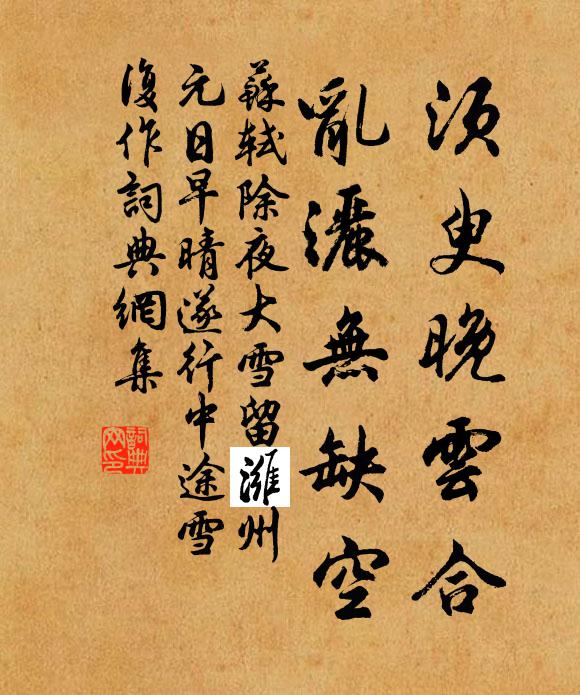 須臾晚雲合
亂灑無缺空
蘇軾除夜大雪留濰州
元日早晴遂行中途雪
復作詞典網集
詞典网印